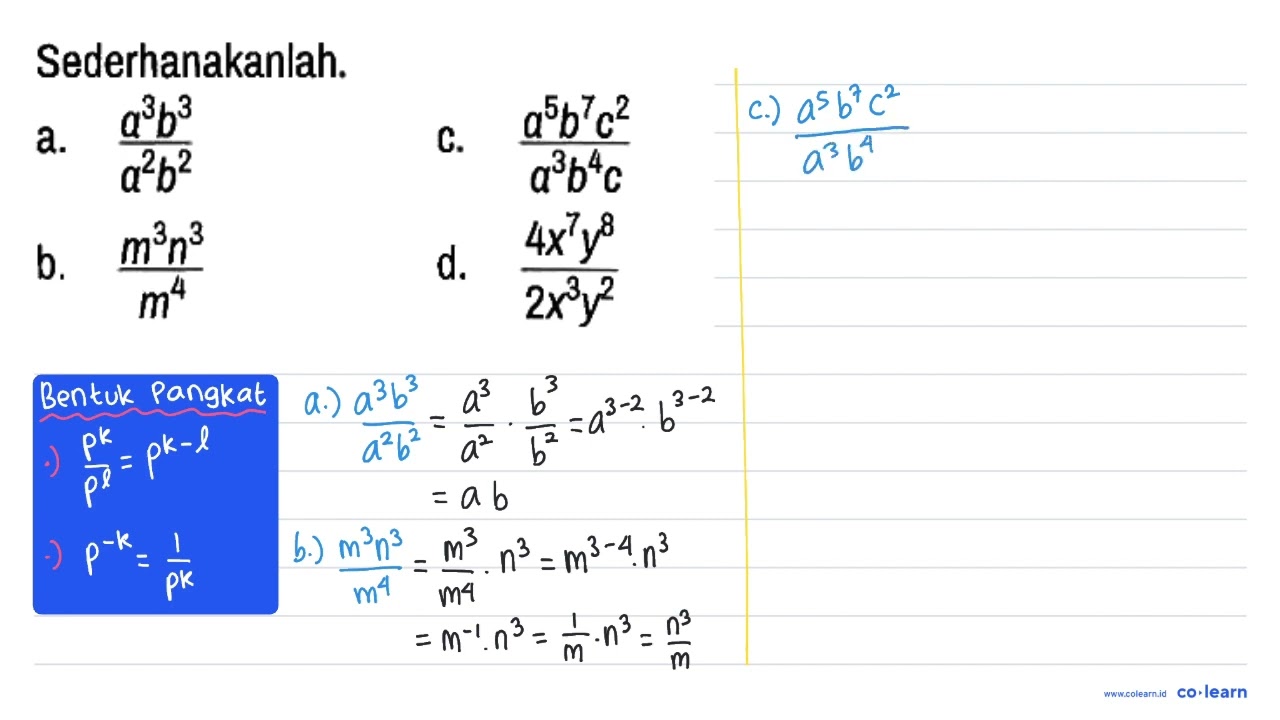 Sederhanakanlah.
a. a³b³/a²b²
b. m³n³/m⁴
c. a⁵b⁷c²/a³b⁴c
d. 4x⁷y⁸/2x³y²
Bentuk Pangkat
·) pᵏ/pˡ = pᵏ⁻ˡ
·) p⁻ᵏ = 1/pᵏ
a.) a³b³/a²b² = a³/a² · b³/b² = a³⁻² · b³⁻²
= a b
b.) m³n³/m⁴ = m³/m⁴ · n³ = m³⁻⁴ · n³
= m⁻¹ · n³ = 1/m · n³ = n³/m
c.) a⁵b⁷c²/a³b⁴
www.colearn.id co·learn